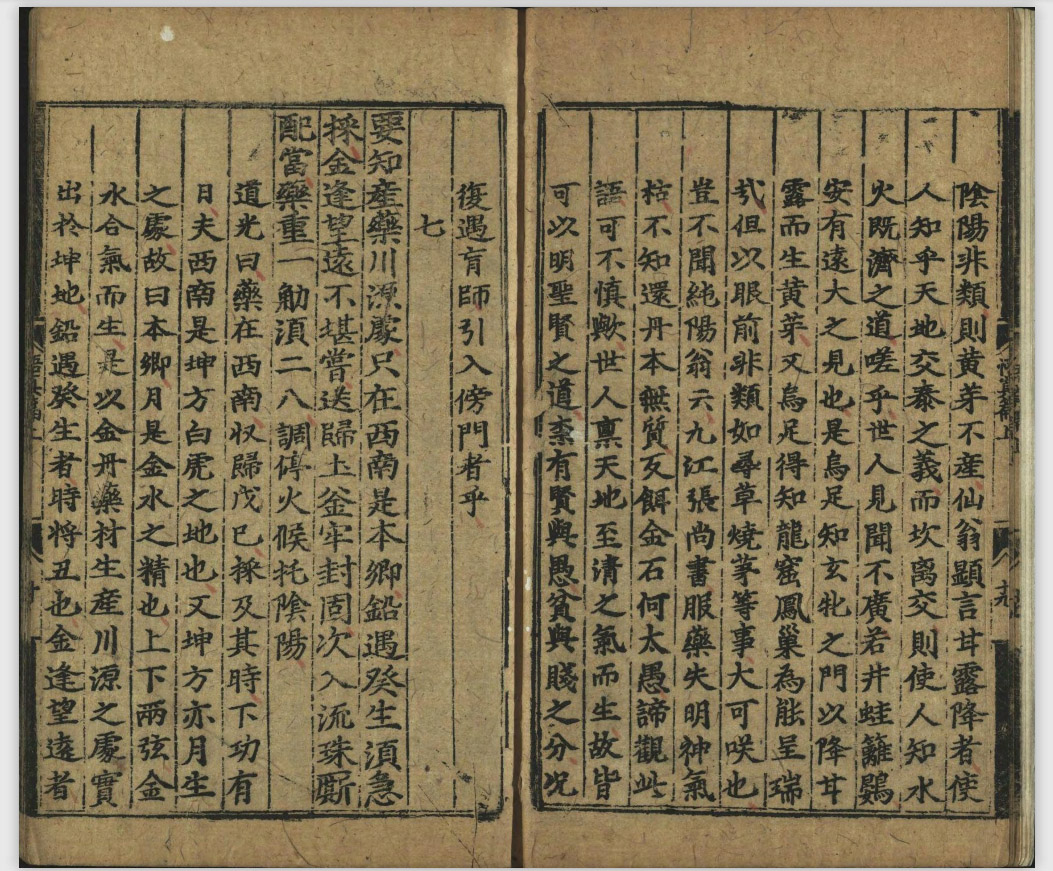 陰陽非類則黄芽不産仙翁顯言甘露降者使
人知乎天地交泰之義而坎离交則使人知水
火既濟之道嗟乎世人見聞不廣若井蛙籬鷃
安有遠大之見也是烏足知玄牝之門以降甘
露而生黄芽又烏足得知龍窟鳳巢為能呈瑞
㢤但以眼前非類如尋草燒茅等事大可咲也
豈不聞純陽翁云九江張尚書服藥失明神氣
枯不知還丹本無質反餌金石何太愚諦觀此
語可不慎歟世人禀天地至清之氣而生故皆
可以明聖賢之道柰有賢與愚貧與賤之分况
復遇盲師引入傍門者乎
七
要知産藥川源處只在西南是本鄉鉛遇癸生須急
採金逢望遠不堪嘗送歸土釜牢封固次入流珠厮
配當藥重一觔須二八調停火候托陰陽
道光曰藥在西南收歸戊己採及其時下功有
日夫西南是坤方白虎之地也又坤方亦月生
之處故曰本鄉月是金水之精也上下兩弦金
水合氣而生是以金丹藥材生産川源之處實
出於坤地鉛遇癸生者時將丑也金逢望遠者